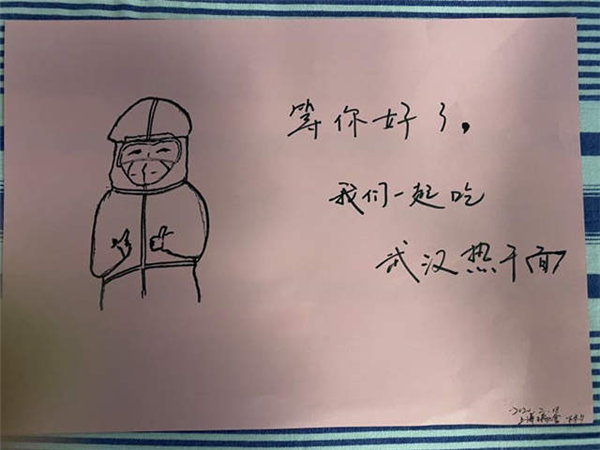 等你好了,
我们一起吃
武汉热干面